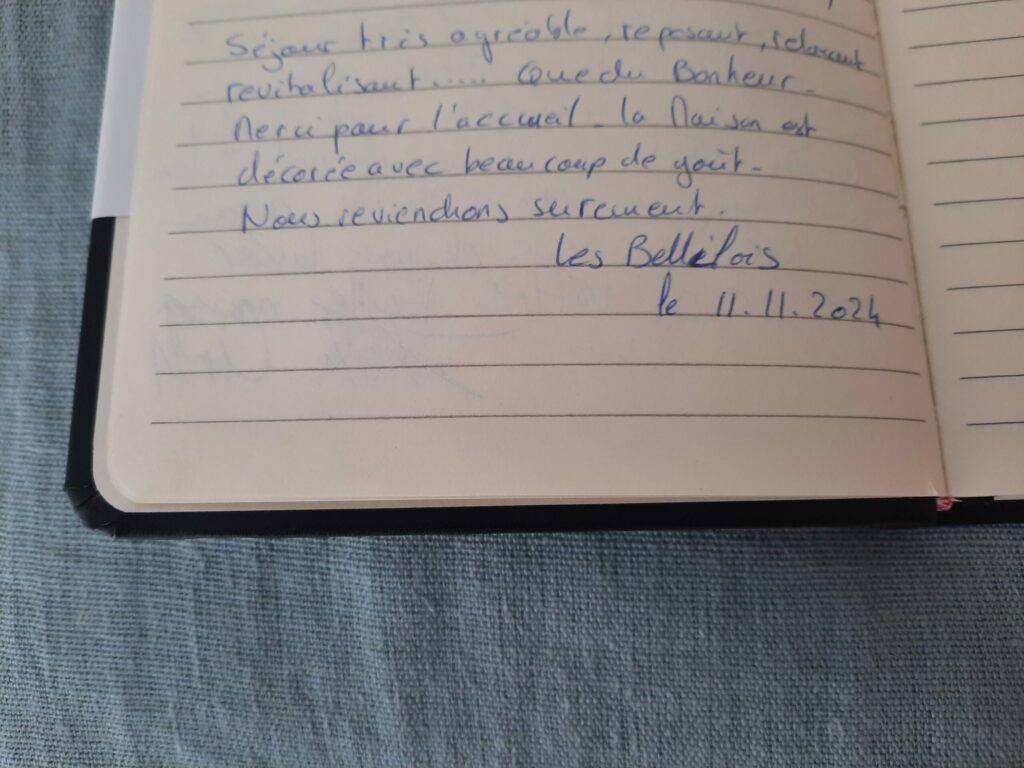 Séjour très agréable, reposant, relaxant
revitalisant..... Que du Bonheur.
Merci pour l'accueil. la Maison est
décorée avec beaucoup de goût.
Nous reviendrons surement.
les Bellilois
le 11.11.2024